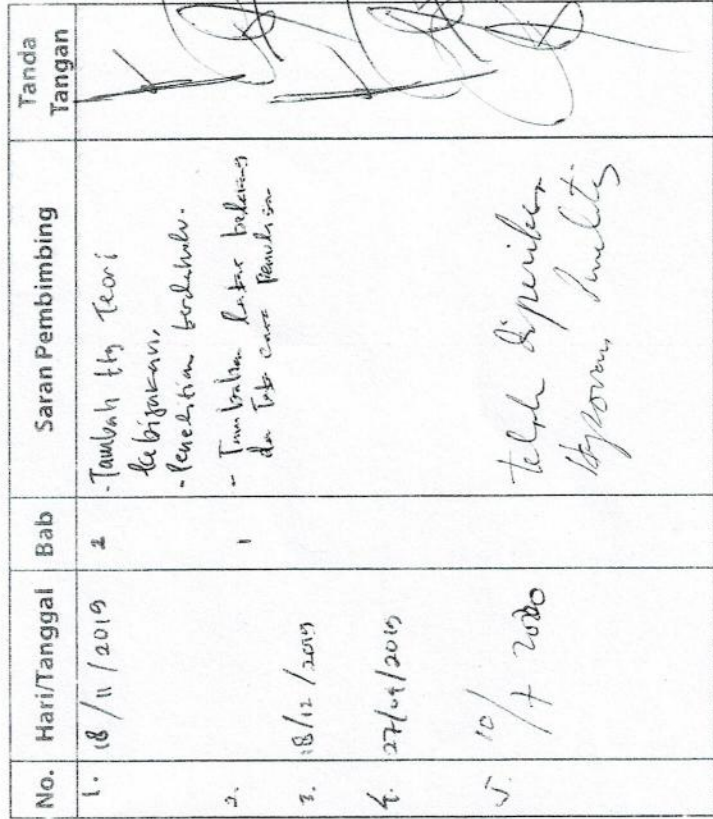 No. Hari/Tanggal Bab Saran Pembimbing Tanda Tangan
1. 18/11/2019 2 - Tambah ttg Teori
kebijakan.
- Penelitian terdahulu.
2. 1 - Tambahan latar belakang
dan Tata cara Penulisan
3. 18/12/2019
4. 27/04/2019
5. 10/7 2020 telah diperiksa